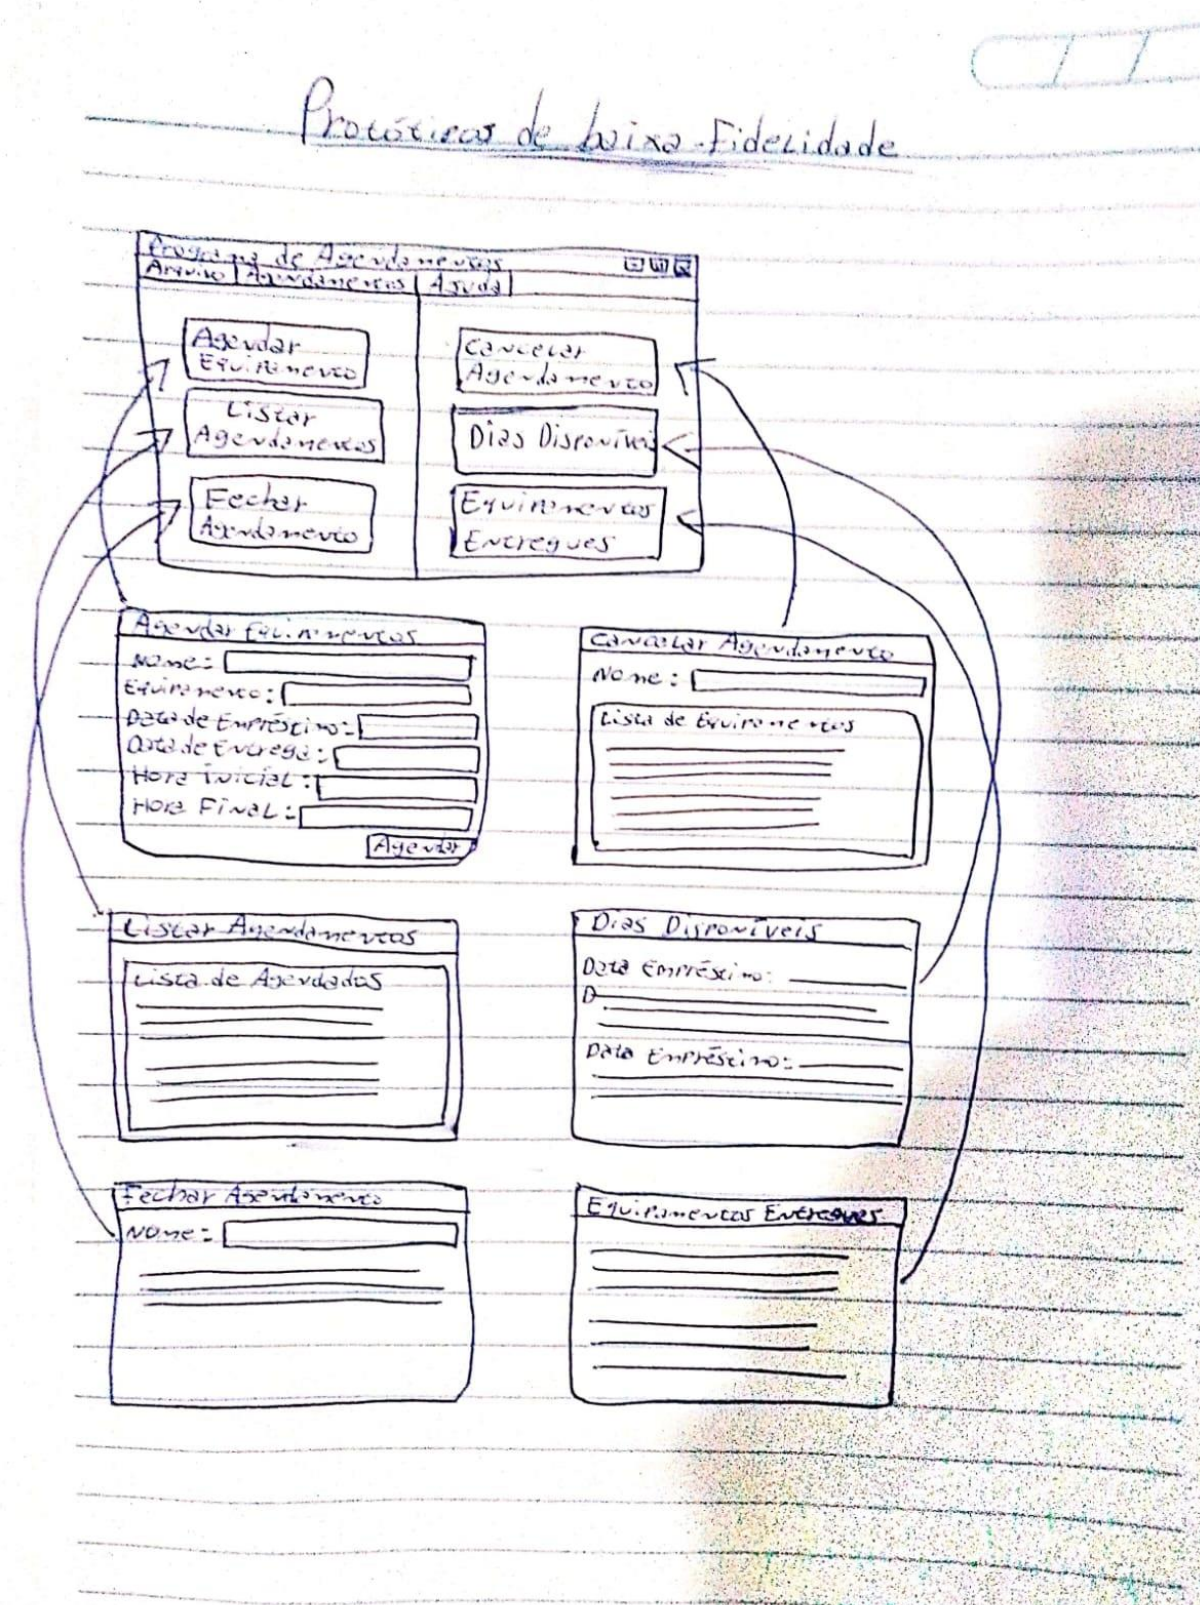 Protótipos de baixa-Fidelidade
Programa de Agendamentos
Arquivo Agendamentos Ajuda
Agendar
Equipamento
Listar
Agendamentos
Fechar
Agendamento
Cancelar
Agendamento
Dias Disponívei
Equipamentos
Entregues
Agendar Equipamentos
Nome:
Equipamento:
Data de Empréstimo:
Data de Entrega:
Hora Inicial:
Hora Final:
Agendar
Cancelar Agendamento
Nome:
Lista de Equipamentos
Listar Agendamentos
Lista de Agendados
Dias Disponíveis
Data Empréstimo:
D
Data Empréstimo:
Fechar Agendamento
Nome:
Equipamentos Entregues